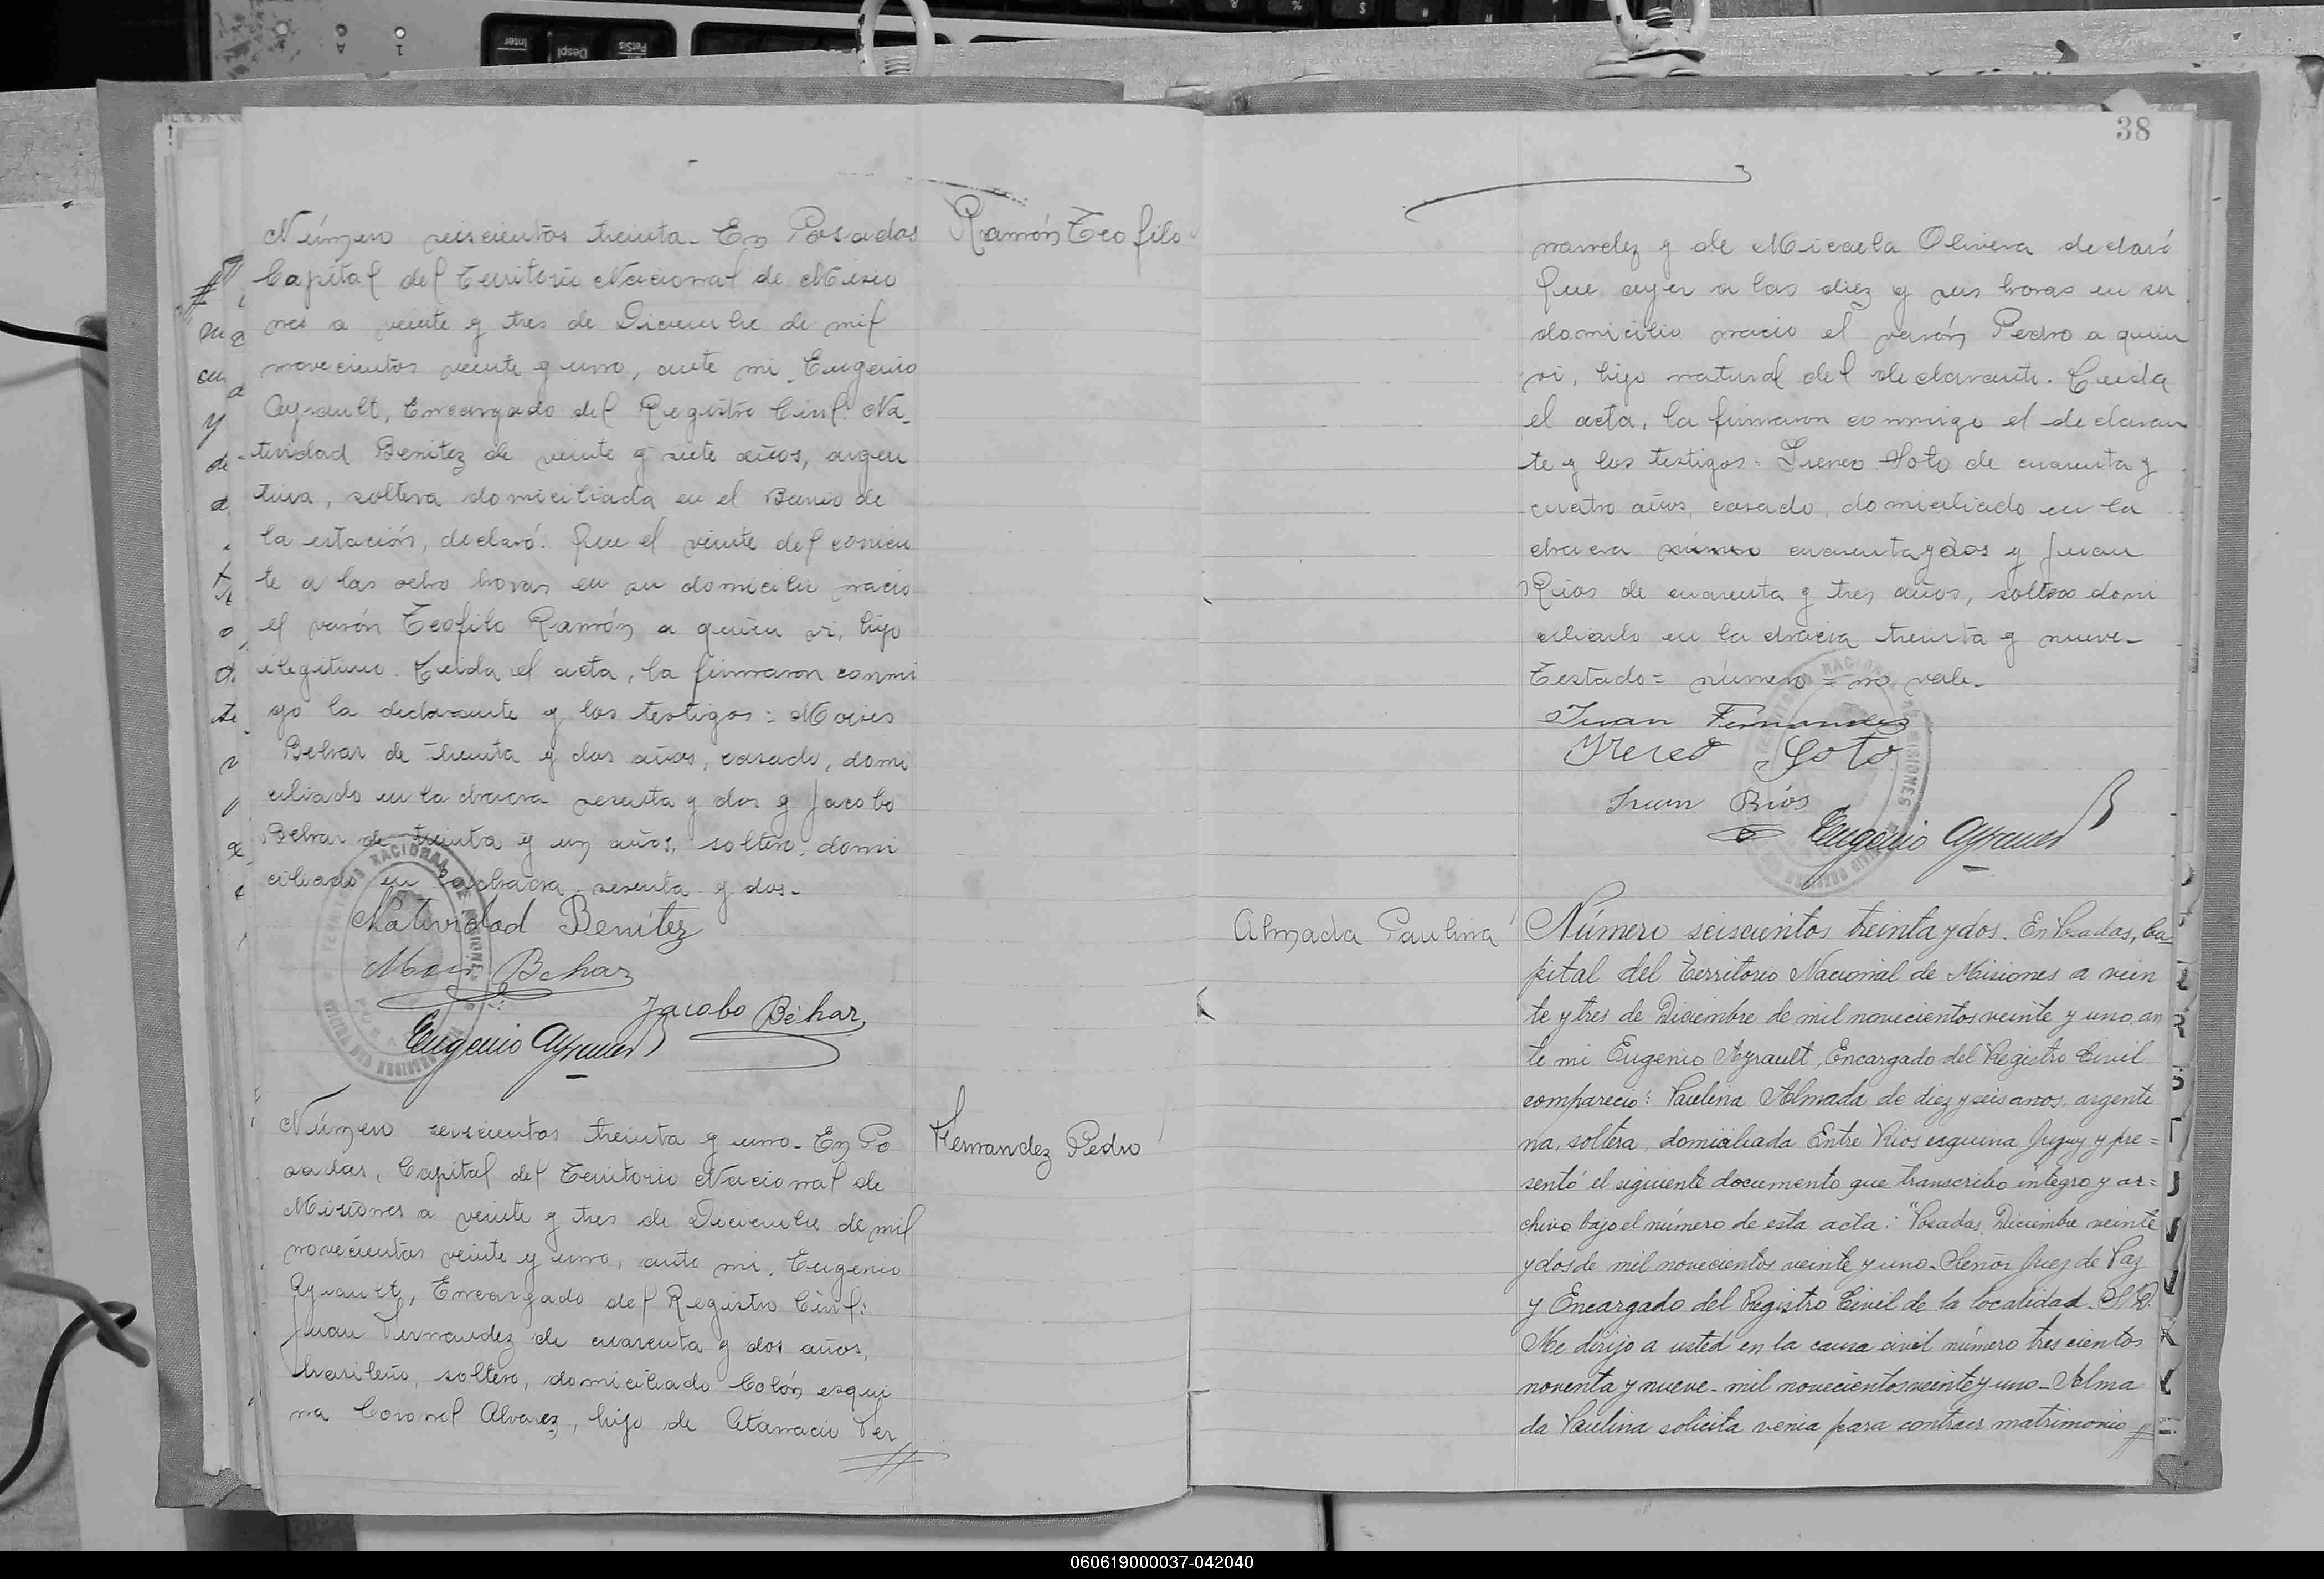 Número seiscientos treinta. En Posadas
Capital del Territorio Nacional de Misio
nes a veinte y tres de Diciembre de mil
novecientos veinte y uno, ante mi, Eugenio
Ayrault, Encargado del Registro Civil: Na-
tividad Benitez de veinte y siete años, argen
tina, soltera domiciliada en el Barrio de
la estación, declaró: Que el veinte del corrien
te a las ocho horas en su domicilio nacio
el varón Teofilo Ramón a quien vi, hijo
ilegitimo. Leida el acta, la firmaron conmi
go la declarante y los testigos: Moises
Behar de treinta y dos años, casado, domi
ciliado en la chacra sesenta y dos y Jacobo
Behar de treinta y un años, soltero, domi
ciliado en la chacra sesenta y dos-
Natividad Benítez
Behar
Jacobo Béhar
Eugenio Ayrault
Ramón Teofilo
Número seiscientos treinta y uno- En Po
sadas, Capital del Territorio Nacional de
Misiones a veinte y tres de Diciembre de mil
novecientos veinte y uno, ante mi, Eugenio
Ayrault, Encargado del Registro Civil:
Juan Fernandez de cuarenta y dos años,
brasileño, soltero, domiciliado Colón esqui
na Coronel Alvarez, hijo de Atanacio Fer
Fernandez Pedro
38
nandez y de Micaela Olivera declaró
Que ayer a las diez y seis horas en su
domicilio nacio el varón Pedro a quien
vi, hijo natural del declarante. Leida
el acta, la firmaron conmigo el declaran
te y los testigos: Ireneo Soto de cuarenta y
cuatro años, casado, domiciliado en la
chacra número cuarenta y dos y Juan
Rios de cuarenta y tres años, soltero domi
ciliado en la chacra treinta y nueve-
Testado= número = no vale-
Juan Fernandez
Ireneo Soto
Juan Ríos
Eugenio Ayrault
Almada Paulina
Número seiscientos treinta y dos. En Posadas, Ca
pital del Territorio Nacional de Misiones a vein
te y tres de Diciembre de mil novecientos veinte y uno, an
te mi Eugenio Ayrault, Encargado del Registro Civil
comparecio: Paulina Almada de diez y seis anos, argenti
na, soltera, domiciliada Entre Rios esquina Jujuy y pre=
sentó el siguiente documento que transcribo integro y ar=
chivo bajo el número de esta acta: "Posadas, Diciembre veinte
y dos de mil novecientos veinte y uno- Señor Juez de Paz
y Encargado del Registro Civil de la localidad. S/D.
Me dirijo a usted en la causa civil número trescientos
noventa y nueve- mil novecientos veinte y uno- Alma
da Paulina solicita venia para contraer matrimonio
060619000037-042040